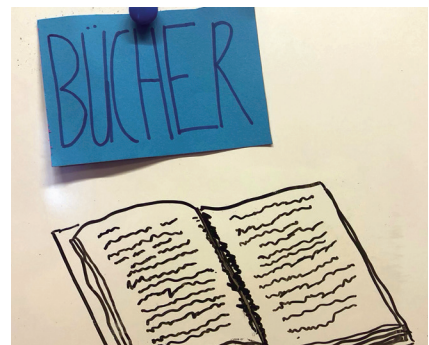 BÜCHER